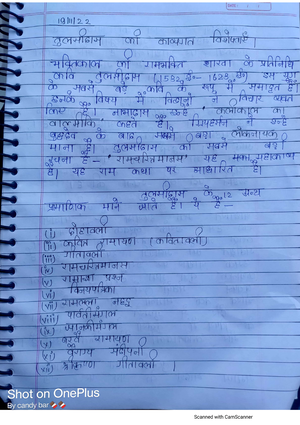 19/11/22
तुलसीदास की काव्यगत विशेषताएँ
भक्तिकाल की रामभक्ति शाखा के प्रतिनिधि
कवि तुलसीदास (1532 ई०- 1623 ई०) इस युग
के सबसे बड़े कवि के रूप में समादृत हैं।
इनके विषय में विद्वानों ने विचार व्यक्त
किए हैं। नाभादास इन्हें 'कलिकाल का
वाल्मीकि' कहते हैं। इन्हें
बुद्धदेव के बाद सबसे बड़ा लोकनायक
माना है। तुलसीदास की सबसे बड़ी
रचना है- 'रामचरितमानस' यह महाकाव्य
है। यह राम कथा पर आधारित है।
तुलसीदास के 12 ग्रन्थ
प्रमाणिक माने जाते हैं। ये हैं -
(i) दोहावली
(ii) कवित्त रामायण (कवितावली)
(iii) गीतावली
(iv) रामचरितमानस
(v) रामाज्ञा प्रश्न
(vi) विनयपत्रिका
(vii) रामलला नहछू
(viii) पार्वतीमंगल
(ix) जानकीमंगल
(x) बरवै रामायण
(xi) वैराग्य संदीपनी
(xii) श्रीकृष्ण गीतावली ।
Shot on OnePlus
By candy bar
Scanned with CamScanner